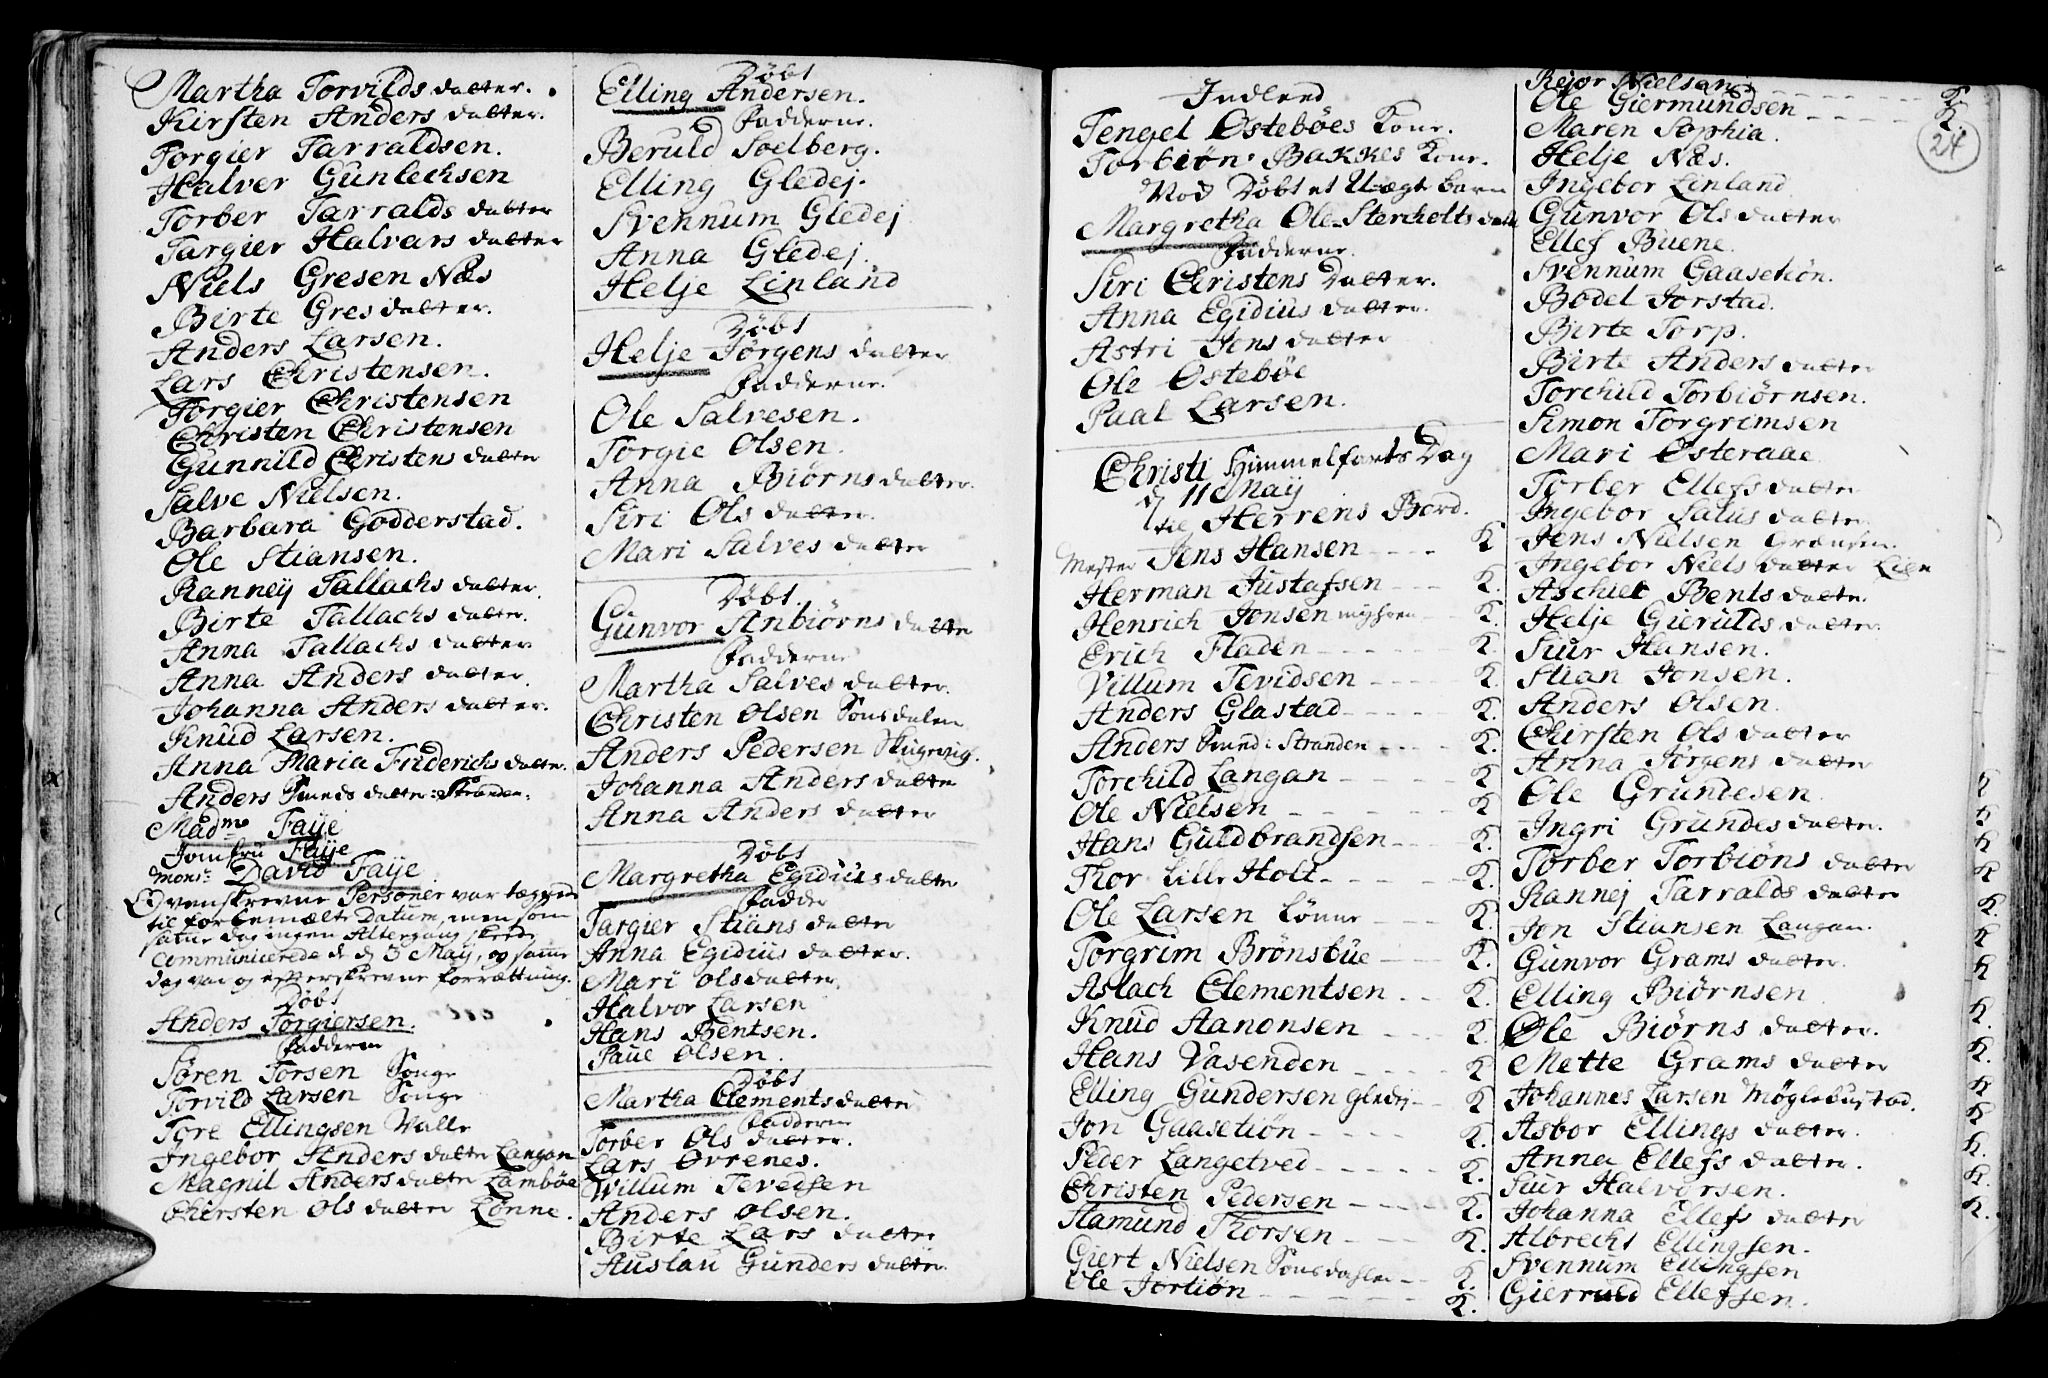 Martha Torvilds datter.
Kirsten Anders datter.
Torgier Tarraldsen.
Halver Gunlechsen
Torber Tarralds datter
Targier Halvars datter
Niels Gresen Næs
Birte Gresdatter.
Anders Larsen.
Lars Christensen.
Torgier Christensen
Christen Christensen
Gunnild Christens datter
Salve Nielsen.
Barbara Godderstad.
Ole Stiansen.
Ranneÿ Tallachs datter.
Birte Tallachs datter.
Anna Tallachs datter
Anna Anders datter.
Johanna Anders datter.
Knud Larsen.
Anna Maria Friderichs datter.
Anders Smeds datter: Stranden:
Madme Faÿe
Jomfru Faÿe
Monsr David Faÿe
Ovenskrevne Personer var tegnede
til forbemælte Datum, men som
samme dag ingen Altergang skede
communicerede de d 3 Maÿ, og samme
dag var og efterskrevne forrættning.
Døbt
Anders Torgiersen.
Fadderne
Søren Torsen Songe
Torvild Larsen Songe
Tore Ellingsen Valle
Ingebor Anders datter Langan
Magnil Anders datter Lambøe
Chersten Ols datter Lønne.
Døbt
Elling Andersen.
Fadderne.
Beruld Soelberg.
Elling Gledej.
Svennum Gledej
Anna Gledej.
Helje Linland
Døbt
Helje Jørgens datter
Fadderne.
Ole Salvesen.
Torgie Olsen.
Anna Biørns datter.
Siri Ols datter.
Mari Salves datter
Døbt.
Gunvor Anbiørns datter
Fadderne
Martha Salves datter.
Christen Olsen Sonsdalen
Anders Pedersen Skugrevig.
Johanna Anders datter
Anna Anders datter
Døbt
Margretha Egidius datter
Fadder
Targier Stians datter
Anna Egidius datter.
Mari Olsdatter.
Halvor Larsen
Hans Bentsen.
Paul Olsen.
Døbt
Martha Clements datter
Fadderne
Torber Ols datter.
Lars Øvrenes.
Willum Tevedsen
Anders Olsen.
Birte Lars datter
Auslau Gunders datter.
Indleed
Tengel Østebøes Kone.
Torbiøn Bakkes Kone.
Nod Døbt et Uægte barn
Margretha Ole Stercholts datter
Fadderne.
Siri Christens Datter.
Anna Egidius datter.
Astri Jons datter
Ole Østebøe
Paal Larsen.
Christi Himmelfarts Dag
d 11 Maÿ
til Herrens Bord.
Mester Jens Hansen - - - - K
Herman Justafsen - - - K.
Henrich Jonsen - - K.
Erich Fladen - - - - - - K.
Villum Tevidsen - - - - - K.
Anders Glastad - - - - - K.
Anders Smed: Stranden - - - - K.
Torchild Langan - - - - K
Ole Nielsen - - - - - - K
Hans Guldbrandsen - - - - K.
Thor Lille Holt - - - - - K.
Ole Larsen Lønne - - - K.
Torgrim Brønsbue - - - K.
Aslach Clementsen - - K.
Knud Aanonsen - - - - K.
Hans Vasenden - - - - K
Elling Gundersen Gledej - - K
Jon Gaasetiøn - - - - K.
Peder Langetved - - - - - K.
Christen Pedersen - - - - K.
Aamund Thorsen - - - - K.
Giert Nielsen Sonsdahlen - - K.
Ole Jortiøn - - - - - - K.
Rejor Nielsen - - - - - - K
Ole Giermundsen - - - - K
24
Maren Sophia.
Helje Næs.
Ingebor Linland
Gunvor Ols datter
Ellef Buene.
Svennum Gaasetiøn.
Bodel Jorstad.
Birte Torp.
Birte Anders datter
Torchild Torbiørnsen.
Simon Torgrimsen
Mari Østeraae.
Torber Ellefs datter
Ingebor Salus datter
Jens Nielsen
Ingebor Niels datter Lien
Aschiet Bents datter.
Helje Gierulds datter
Siur Hansen.
Stian Jonsen.
Anders Olsen.
Chersten Ols datter
Anna Jørgens datter
Ole Grundesen. K
Ingri Grundes datter. K
Torber Torbiøns datter K
Rannej Tarralds datter K
Jon Stiansen Langan. K.
Gunvor Grams datter. K
Elling Biørnsen K
Ole Biørns datter. K.
Mette Grams datter K.
Johannes Larsen Møglebustad. K
Asbor Ellings datter. K
Anna Ellefs datter. K.
Siur Halvorsen. K.
Johanna Ellefs datter K.
Albrecht Ellingsen.
Svennum Ellingsen
Gierruld Ellefsen.